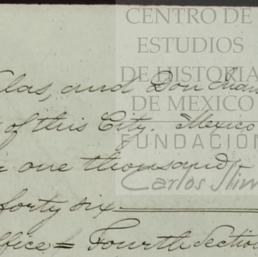 CENTRO DE
ESTUDIOS
DE HISTORIA
DE MEXICO
FUNDACIÓN
Carlos Slim
las, and Don Juan
of this City. Mexico
one thousand
forty six
ffice = Fourth Section